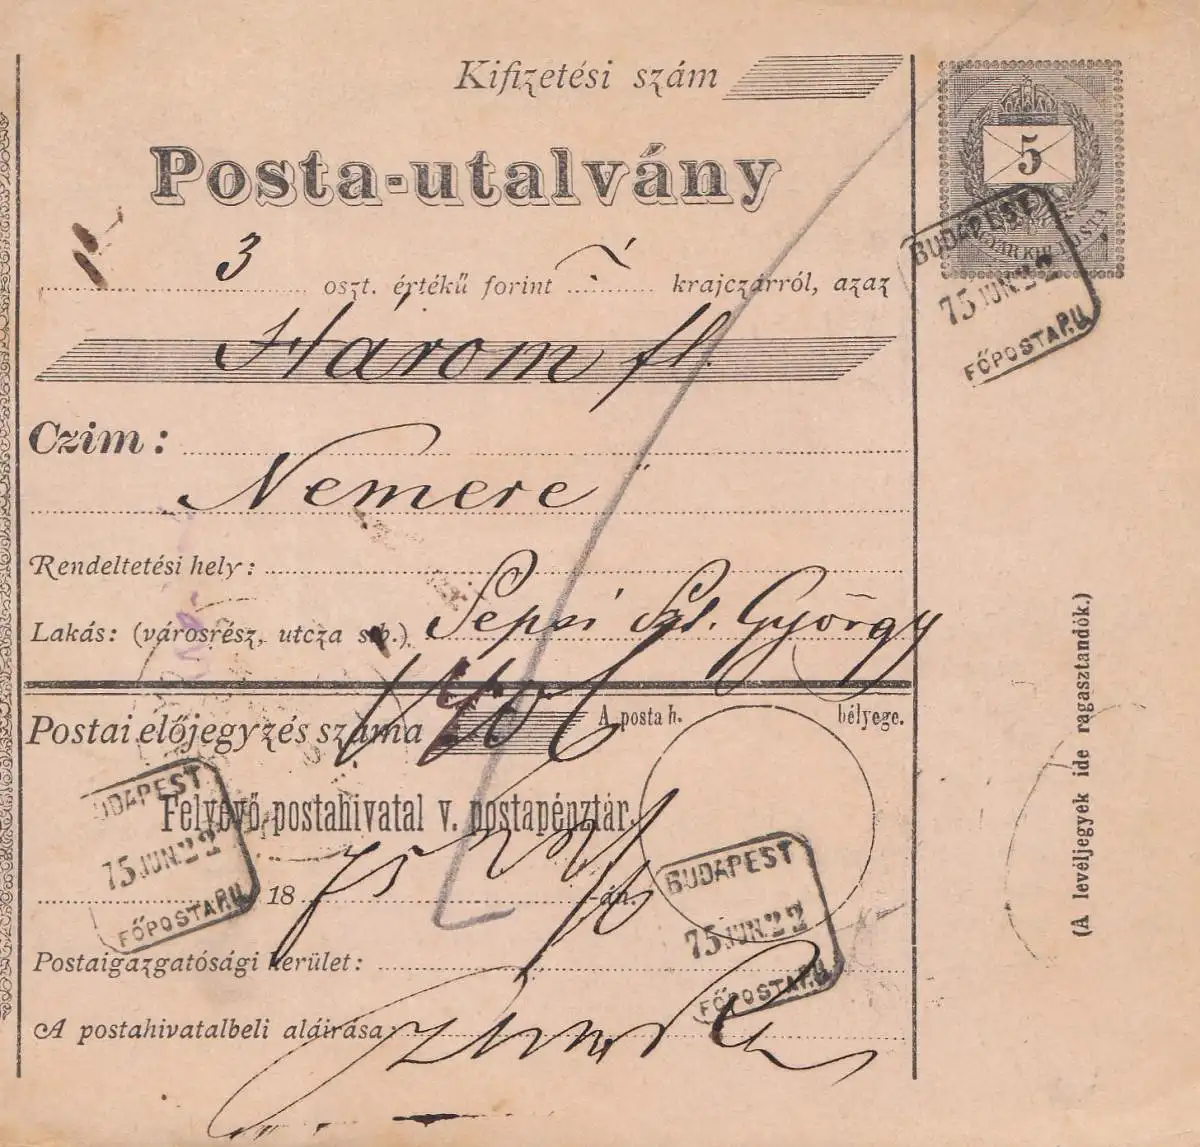 Kifizetési szám
Posta-utalvány
5
MAGYAR KIR. POSTA
BUDAPEST
75 JUN. 22
FŐPOSTA P.U.
3 oszt. értékű forint krajczárról, azaz
Három fl.
Czim:
Nemere
Rendeltetési hely:
Lakás: (városrész, utcza stb.) Sepsi Szt. György
Postai előjegyzés száma
A posta h. bélyege.
BUDAPEST
75 JUN. 22
FŐPOSTA P.U.
Felvevő postahivatal v. postapénztár.
1875 -án.
BUDAPEST
75 JUN. 22
FŐPOSTA P.U.
Postaigazgatósági kerület:
A postahivatalbeli aláirása:
(A levéljegyek ide ragasztandók.)